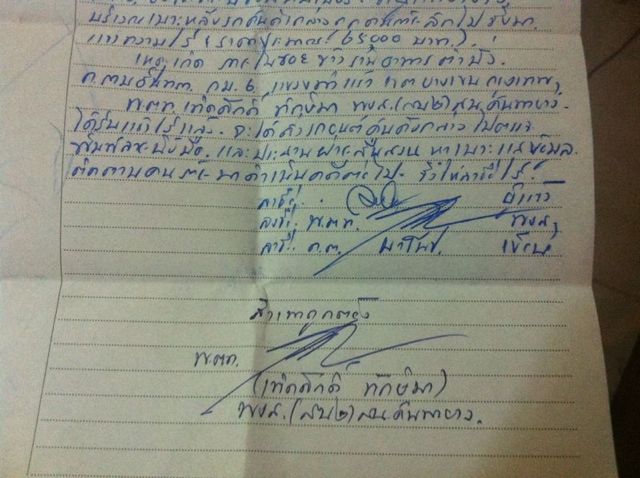 บริเวณเบาะหลังรถคันดังกล่าวถูกคนร้ายลักไป
แจ้งความไว้ (ราคาประมาณ 65000 บาท)
เหตุเกิด ภายในซอย ข้างร้านอาหารตำมั่ว
ถ.รามอินทรา กม. 6 แขวงท่าแร้ง เขตบางเขน กรุงเทพฯ
พ.ต.ท. เทิดศักดิ์ ทักษิมา พงส.(สบ๒) สน.คันนายาว
ได้รับแจ้งไว้แล้ว จะได้ส่งรถยนต์คันดังกล่าวไปตรวจ
และประสานฝ่ายสืบสวน หาเบาะแสข้อมูล
ติดตามคนร้ายมาดำเนินคดีต่อไป จึงให้ลงชื่อไว้
ลงชื่อ ผู้แจ้ง
ลงชื่อ พ.ต.ท. พงส.
ลงชื่อ ด.ต. มาโนช เขียน
สำเนาถูกต้อง
พ.ต.ท.
(เทิดศักดิ์ ทักษิมา)
พงส.(สบ๒) สน.คันนายาว